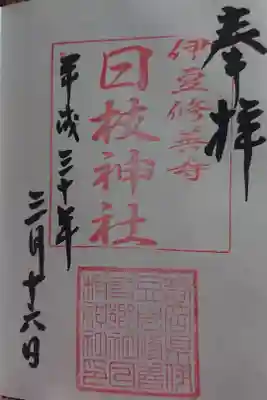 奉拝
伊豆修善寺
日枝神社
平成三十年
三月十六日